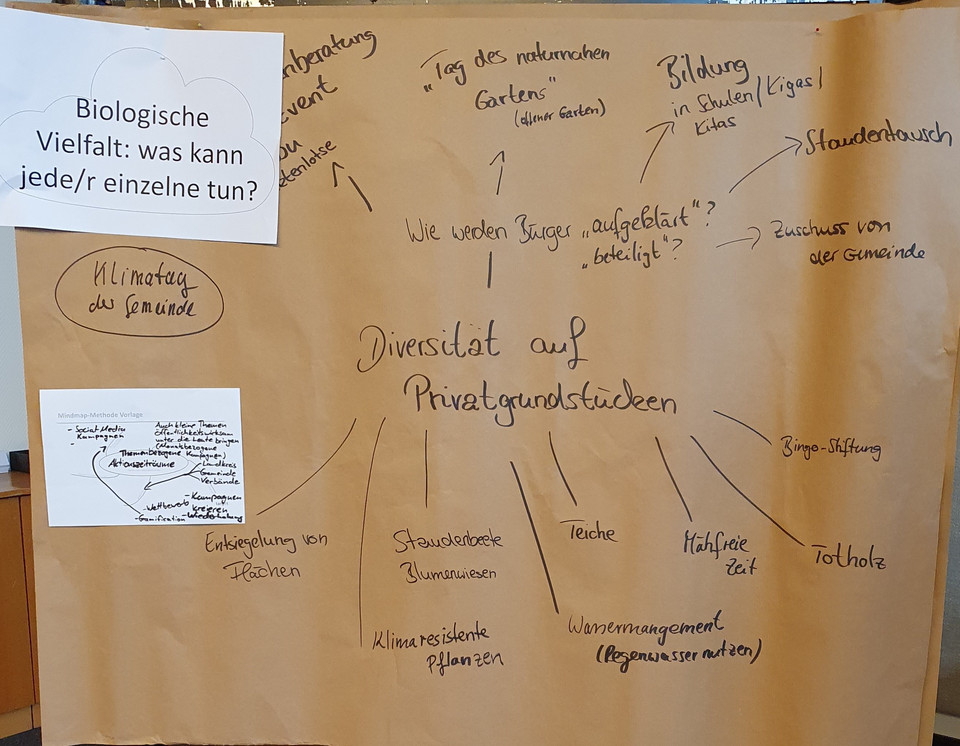 Biologische
Vielfalt: was kann
jede/r einzelne tun?
nberatung
event
„Tag des naturnahen
Gartens"
(offener Garten)
Bildung
in Schulen/Kigas/
Kitas
Staudentausch
Wie werden Bürger „aufgeklärt"?
„beteiligt"?
Zuschuss von
der Gemeinde
Klimatag
der Gemeinde
Diversität auf
Privatgrundstücken
Mindmap-Methode Vorlage
- Social Media
Kampagnen
-
Auch kleine Themen
öffentlichkeitswirksam
unter die Leute bringen
(Monatsbezogene
Kampagnen)
Themenbezogene
Aktionszeiträume
- Landkreis
- Gemeinde
- Verbände
- Wettbewerb
- Gamification
- Kampagnen
kreieren
- Wiederholung
Bingo-Stiftung
Entsiegelung von
Flächen
Staudenbeete
Blumenwiesen
Teiche
Mähfreie
Zeit
Totholz
Klimaresistente
Pflanzen
Wassermangement
(Regenwasser nutzen)